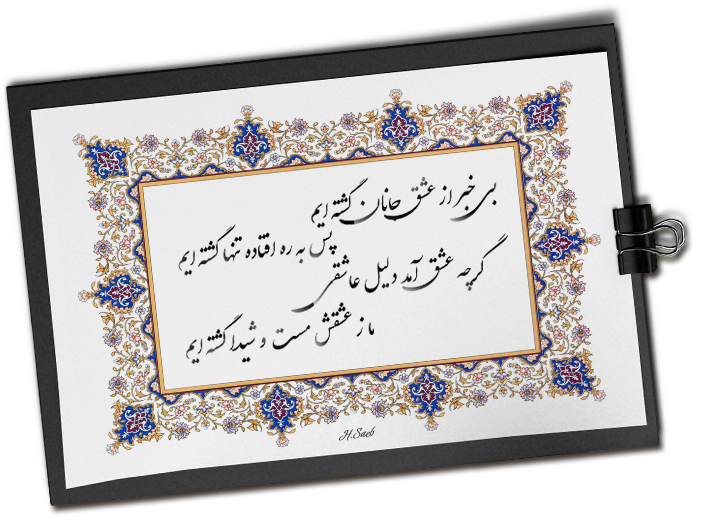 بی خبر از عشق جانان گشته ایم
پس به ره افتاده تنها گشته ایم
گرچه عشق آمد دلیل عاشقی
ما ز عشقش مست و شیدا گشته ایم
H.Saeb